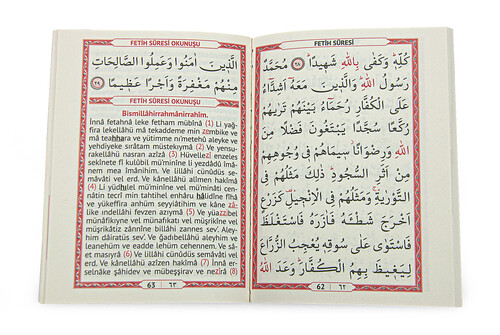 FETİH SÛRESİ
كُلِّهٖ وَكَفٰى بِاللّٰهِ شَهٖيدًاؕ ﴿٢٨﴾ مُحَمَّدٌ
رَسُولُ اللّٰهِؕ وَالَّذٖينَ مَعَهُٓ اَشِدَّٓاءُ
عَلَى الْكُفَّارِ رُحَمَٓاءُ بَيْنَهُمْ تَرٰيهُمْ
رُكَّعًا سُجَّدًا يَبْتَغُونَ فَضْلًا مِنَ
اللّٰهِ وَرِضْوَانًاؗ سٖيمَاهُمْ فٖي وُجُوهِهِمْ
مِنْ اَثَرِ السُّجُودِؕ ذٰلِكَ مَثَلُهُمْ فِي
التَّوْرٰيةِۚ وَمَثَلُهُمْ فِي الْاِنْجٖيلِۚ كَزَرْعٍ
اَخْرَجَ شَطْـَٔهُ فَاٰزَرَهُ فَاسْتَغْلَظَ
فَاسْتَوٰى عَلٰى سُوقِهٖ يُعْجِبُ الزُّرَّاعَ
لِيَغٖيظَ بِهِمُ الْكُفَّارَؕ وَعَدَ اللّٰهُ
62 ٦٢
FETİH SÛRESİ OKUNUŞU
الَّذٖينَ اٰمَنُوا وَعَمِلُوا الصَّالِحَاتِ
مِنْهُمْ مَغْفِرَةً وَاَجْرًا عَظٖيمًا ﴿٢٩﴾
FETİH SÛRESİ OKUNUŞU
Bismillâhirrahmânirrahîm.
İnnâ fetahnâ leke fetham mübînâ (1) Li yağ-
fira lekellâhü mâ tekaddeme min zembike ve
mâ teahhara ve yütimme ni'metehû aleyke ve
yehdiyeke sırâtam müstekymâ (2) Ve yensu-
rakellâhü nasran azîzâ (3) Hüvellezî enzeles
sekînete fî kulûbil mü'minîne li yezdâdû îmâ-
nem mea îmânihim. Ve lillâhi cünûdüs se-
mâvâti vel erd. Ve kânellâhü alîmen hakîmâ
(4) Li yüdhılel mü'minîne vel mü'minâti cen-
nâtin tecrî min tahtihel enhâru hâlidîne fîhâ
ve yükeffira anhüm seyyiâtihim ve kâne zâ-
like ındellâhi fevzen azıymâ (5) Ve yüazzibel
münâfikıyne vel münâfikati vel müşrikîne vel
müşrikâtiz zânnîne billâhi zannes sev'. Aley-
him dâiratüs sev'. Ve ğadıbellâhü aleyhim ve
leanehüm ve eadde lehüm cehennem. Ve sâ-
et masıyrâ (6) Ve lillâhi cünûdüs semâvâti vel
erd. Ve kânellâhü azîzen hakîmâ (7) İnnâ er-
selnâke şâhidev ve mübeşşirav ve nezîrâ (8)
63 ٦٣